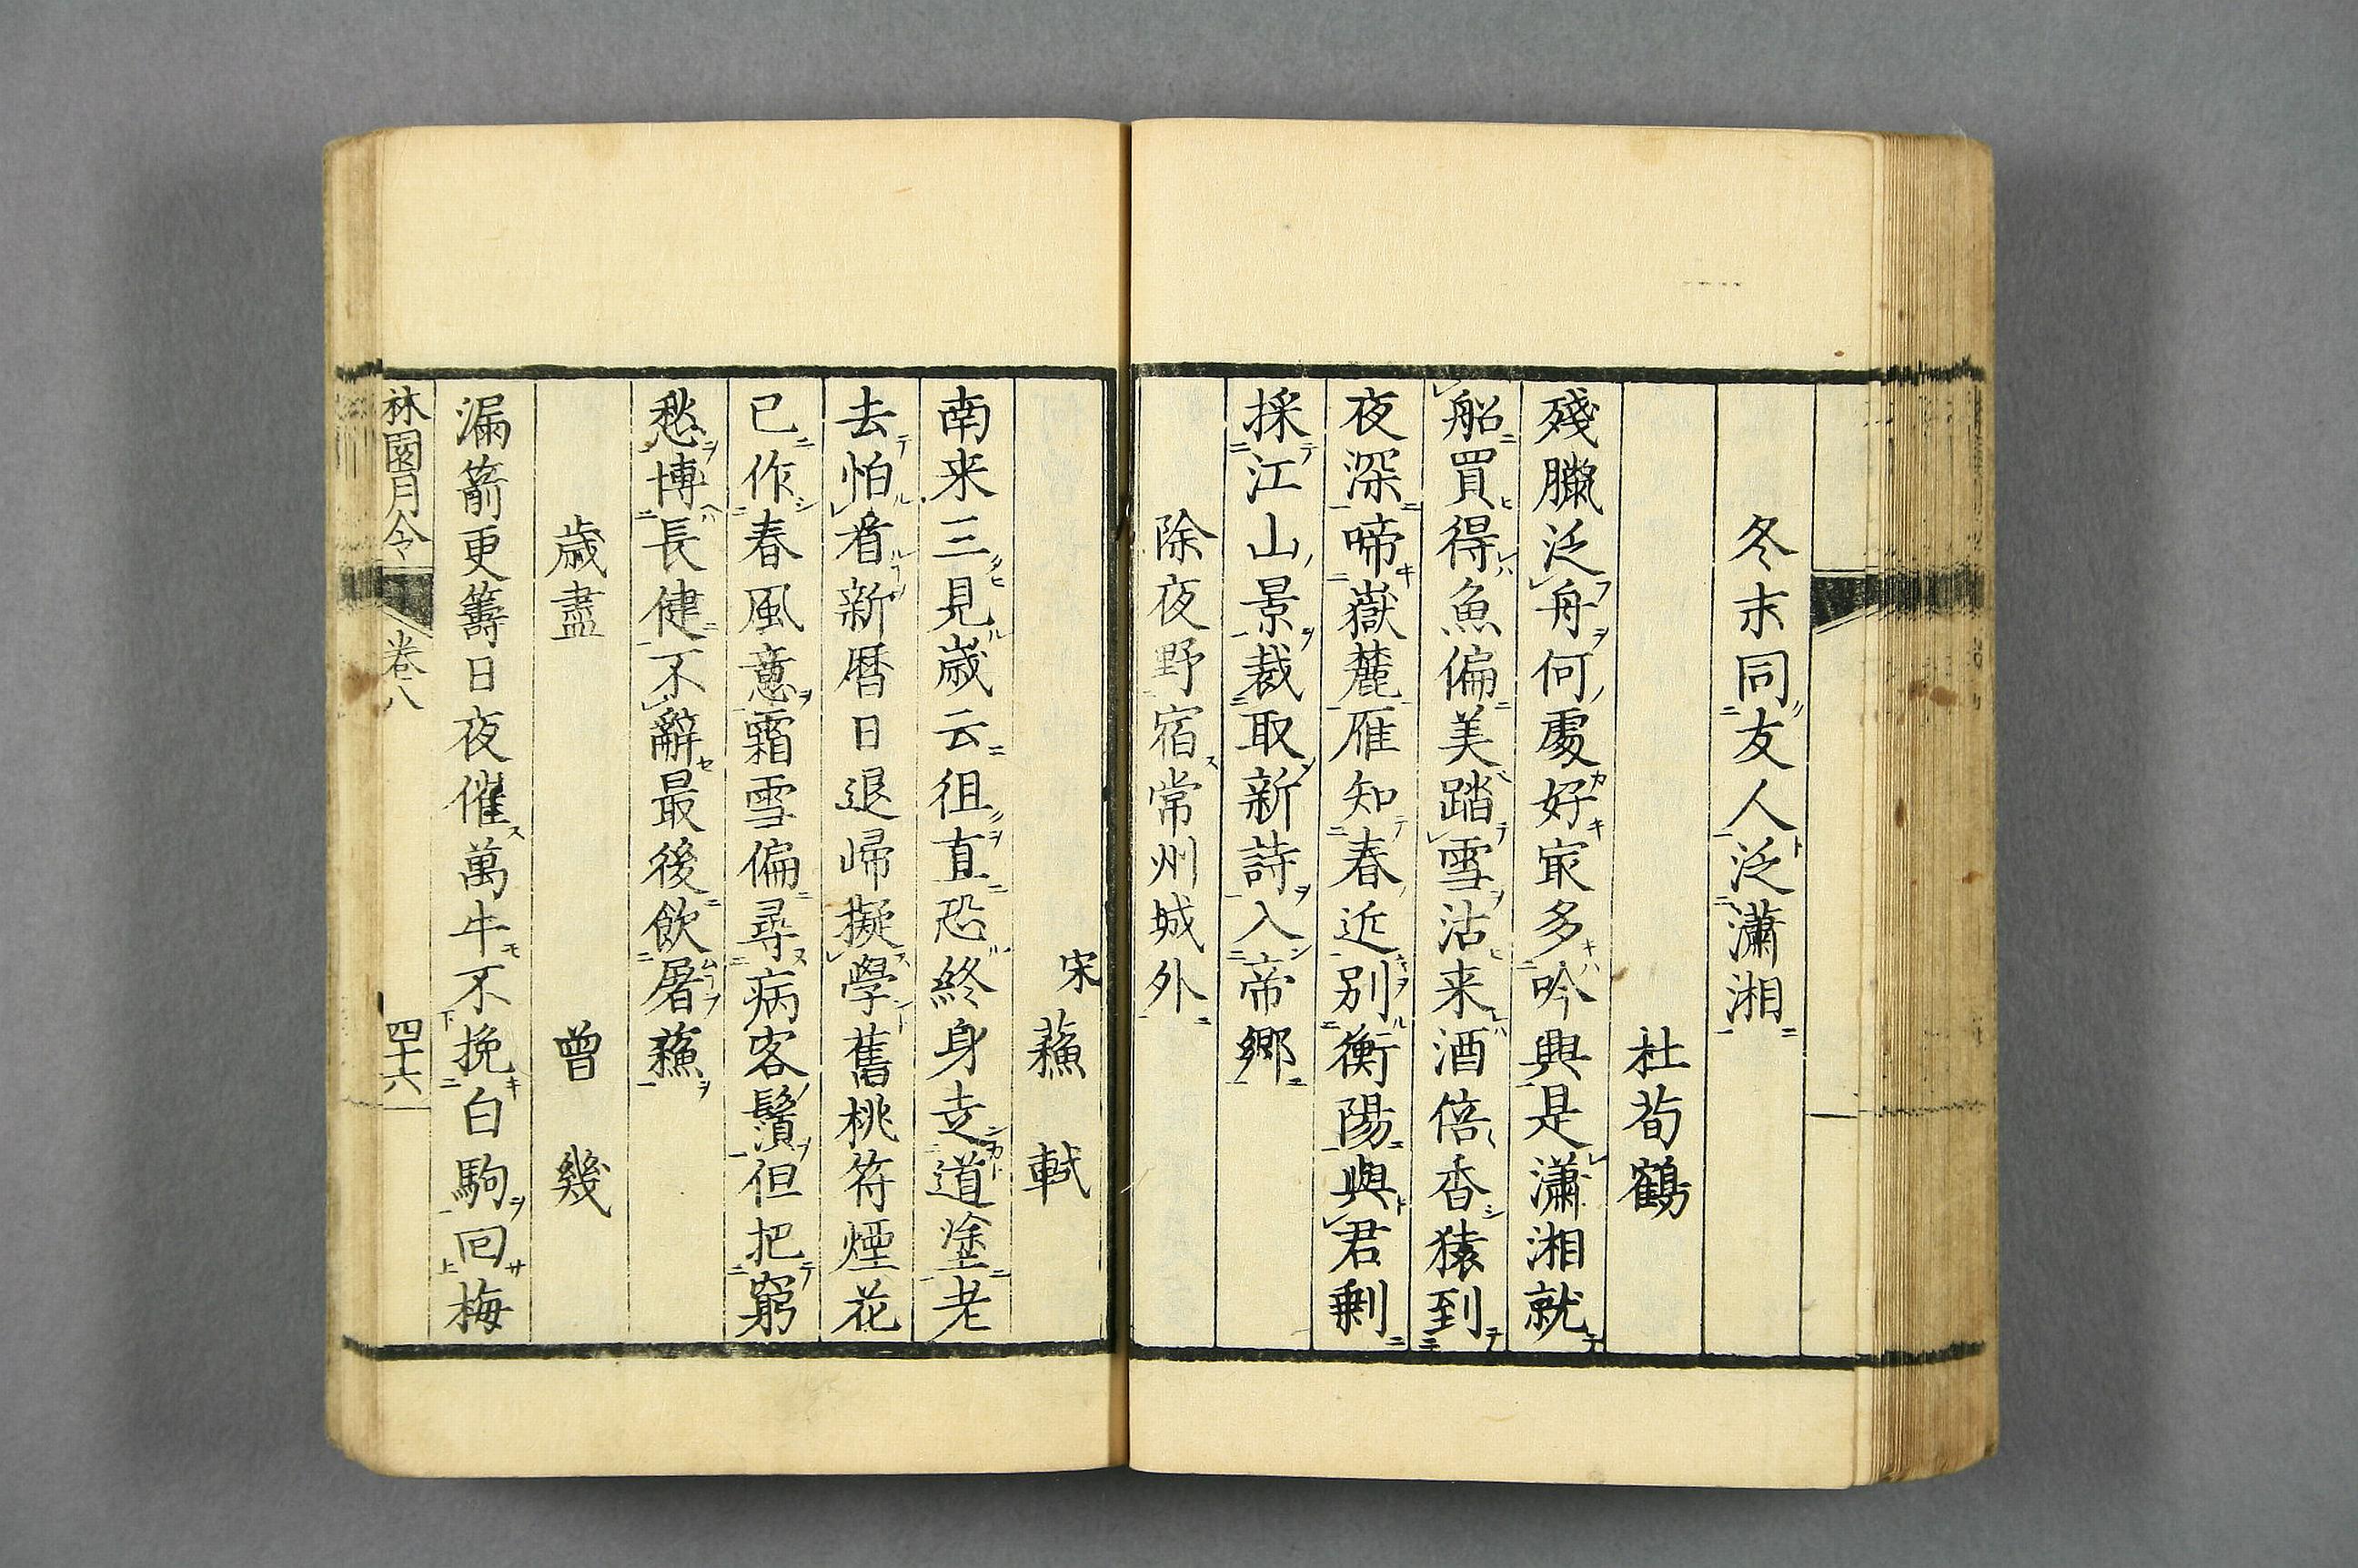 冬末同友人泛瀟湘
杜荀鶴
殘臘泛舟何處好㝡多吟興是瀟湘就
船買得魚偏美踏雪沽来酒倍香猿到
夜深啼嶽麓雁知春近別衡陽與君剩
採江山景裁取新詩入帝鄉
除夜野宿常州城外
宋 蘓軾
南来三見歲云徂直恐終身走道塗老
去怕看新曆日退歸擬學舊桃符煙花
已作春風意霜雪偏尋病客鬚但把窮
愁博長健不辭最後飲屠蘓
歲盡
曾幾
漏箭更籌日夜催萬牛不挽白駒回梅
林園月令 卷八 四十六